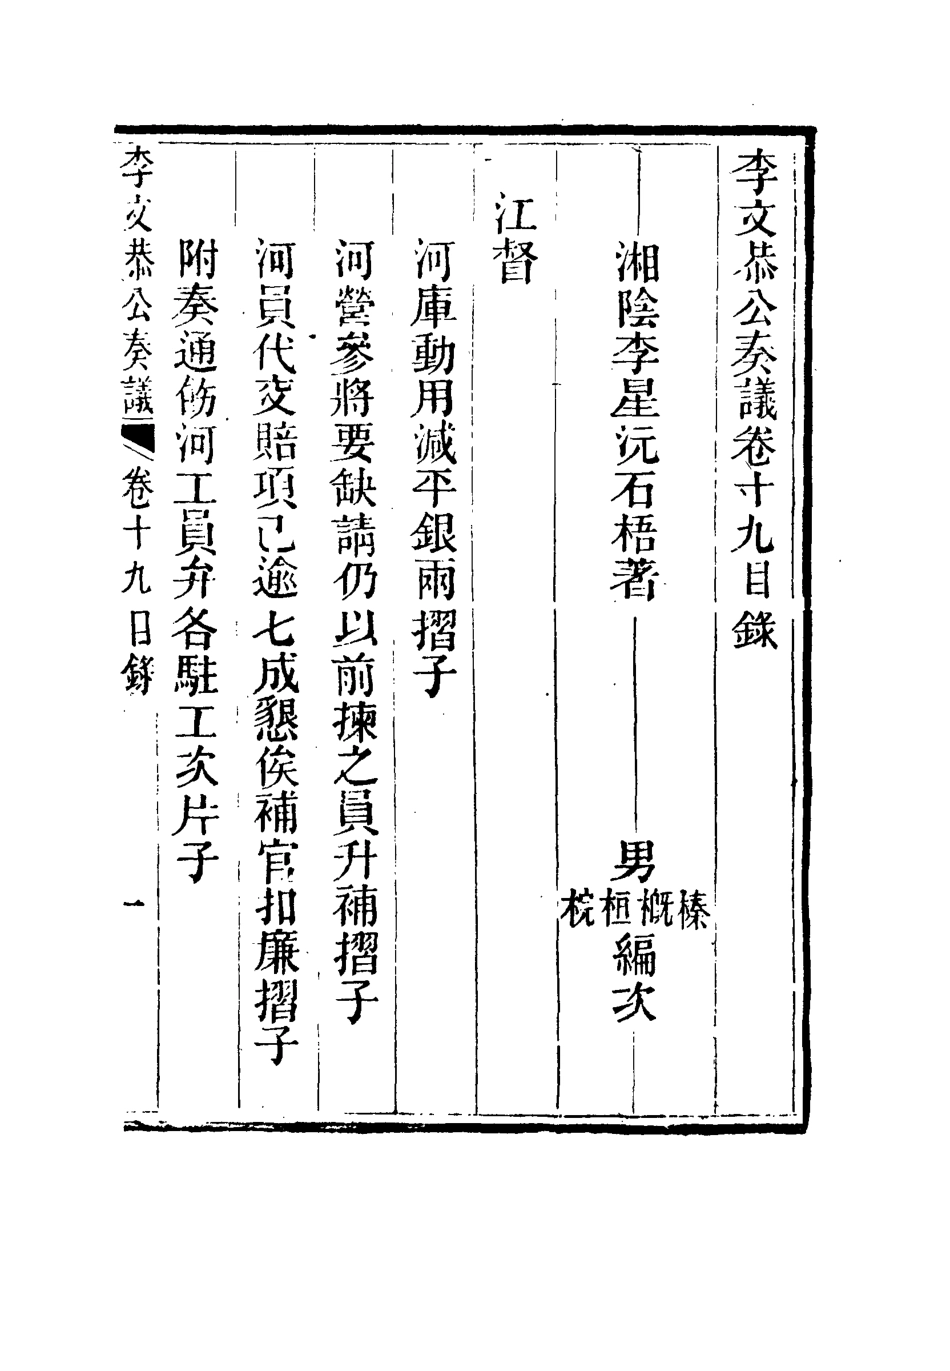 李文恭公奏議卷十九目錄
湘陰李星沅石梧著 男榛概桓梡編次
江督
河庫動用減平銀兩摺子
河營參將要缺請仍以前揀之員升補摺子
河員代交賠項已逾七成懇俟補官扣廉摺子
附奏通飭河工員弁各駐工次片子
李文恭公奏議 卷十九目錄 一